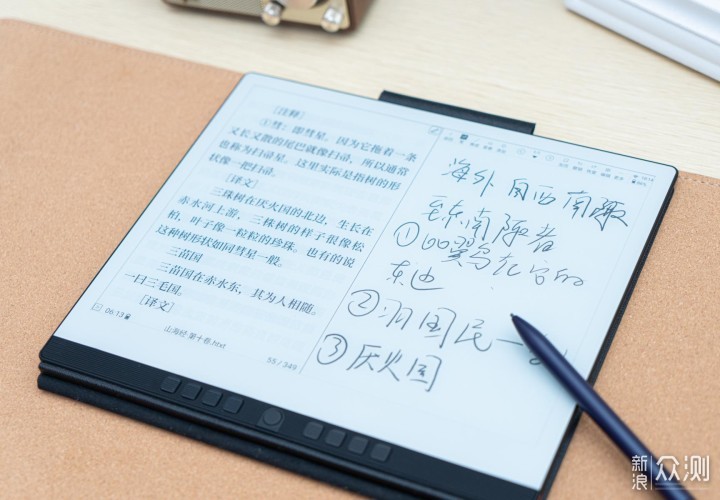 [注释]
①彗:即彗星。因为它拖着一条
又长又散的尾巴就像扫帚,所以通常
也称为扫帚星。这里实际是指树的形
状像一把扫帚。
[译文]
三珠树在厌火国的北边,生长在
赤水河上游,三株树的样子很像松
柏,叶子像一粒粒的珍珠。也有的说
这种树形状如同彗星一般。
三苗国
三苗国在赤水东,其为人相随。
一曰三毛国。
[译文]
06:13
山海经 第十卷.txt
55 / 349
海外自西南陬
至东南陬者
①比翼鸟在
东边
②羽国民一
③厌火国
新浪众测